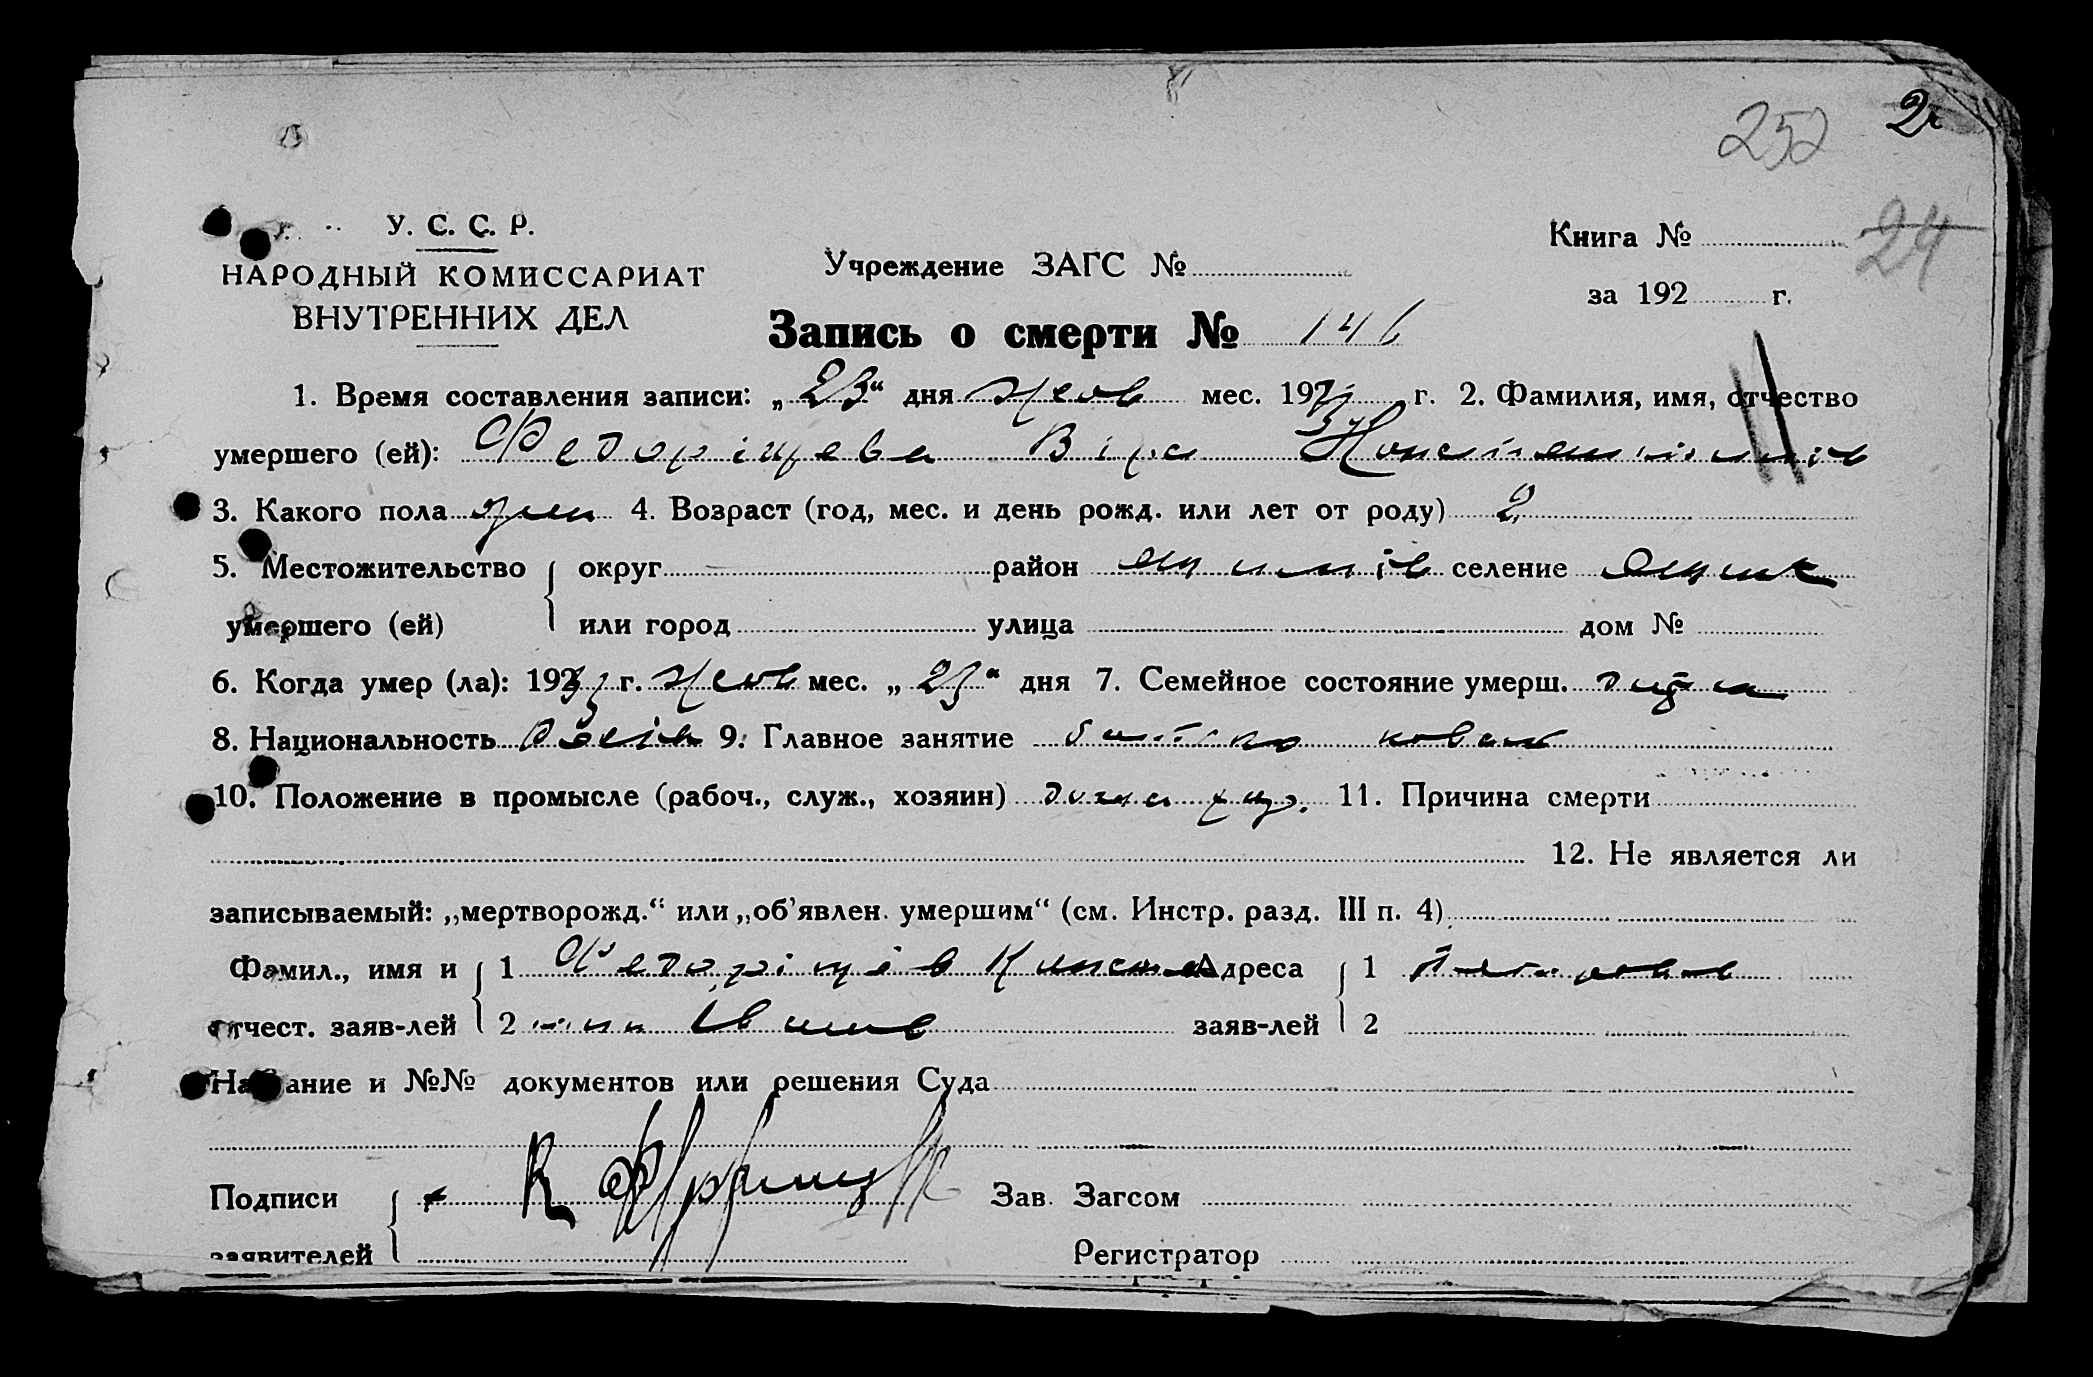 252 2
24
У. С. С. Р.
НАРОДНЫЙ КОМИССАРИАТ
ВНУТРЕННИХ ДЕЛ
Учреждение ЗАГС №
Книга №
за 192 г.
Запись о смерти № 146
1. Время составления записи: „23“ дня жов мес. 192 г. 2. Фамилия, имя, отчество
умершего (ей): Федоріщева Віра
3. Какого пола жін 4. Возраст (год, мес. и день рожд. или лет от роду) 2
5. Местожительство округ район селение
умершего (ей) или город улица дом №
6. Когда умер (ла): 192 г. жов мес. „23“ дня 7. Семейное состояние умерш. дитина
8. Национальность 9. Главное занятие батько коваль
10. Положение в промысле (рабоч., служ., хозяин) 11. Причина смерти
12. Не является ли
записываемый: „мертворожд.“ или „об’явлен. умершим“ (см. Инстр. разд. III п. 4)
Фамил., имя и 1 Федоріщів Конста Адреса 1
отчест. заяв-лей 2 заяв-лей 2
Название и №№ документов или решения Суда
Подписи Зав. Загсом
заявителей Регистратор